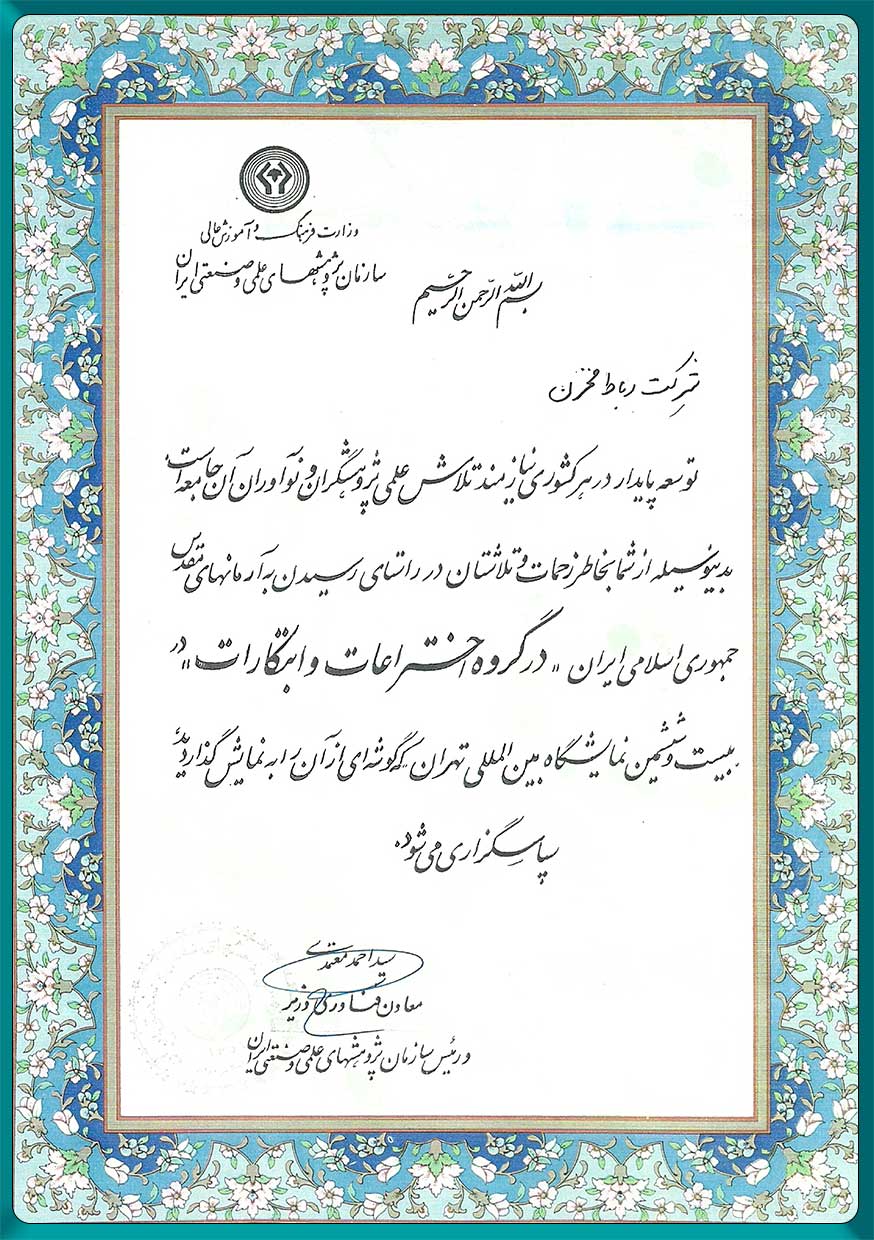 وزارت فرهنگ و آموزش عالی
سازمان پژوهشهای علمی و صنعتی ایران
بسم الله الرحمن الرحیم
شرکت رباط مخزن
توسعه پایدار در هر کشوری نیازمند تلاش علمی پژوهشگران و نوآوران آن جامعه است.
بدینوسیله از شما بخاطر زحمات و تلاشتان در راستای رسیدن به آرمانهای مقدس
جمهوری اسلامی ایران "در گروه اختراعات و ابتکارات" در
بیست و ششمین نمایشگاه بین المللی تهران که گوشه ای از آن را به نمایش گذاردید
سپاسگزاری می شود.
سید احمد معتمدی
معاون فناوری وزیر
و رئیس سازمان پژوهشهای علمی و صنعتی ایران